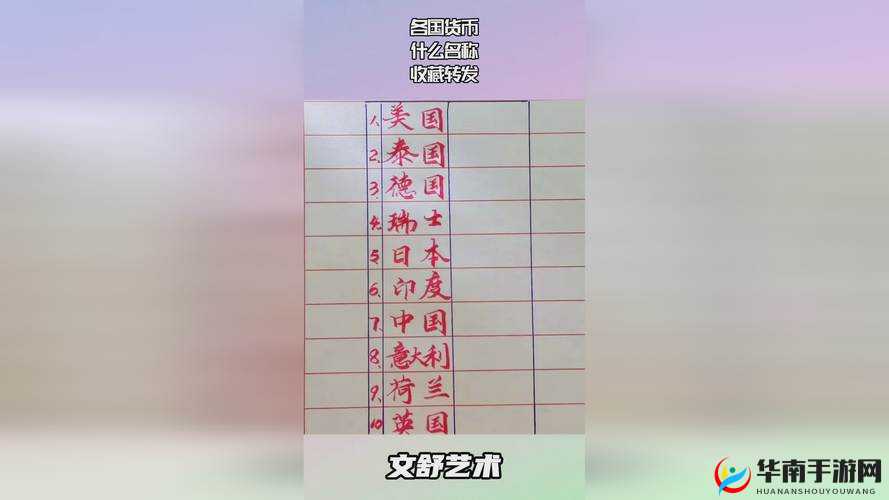 各国货币
什么名称
收藏转发
1、美国
2、泰国
3、德国
4、瑞士
5、日本
6、印度
7、中国
8、意大利
9、荷兰
10 英国
文舒艺术
华南手游网
HUANANSHOUYOUWANG